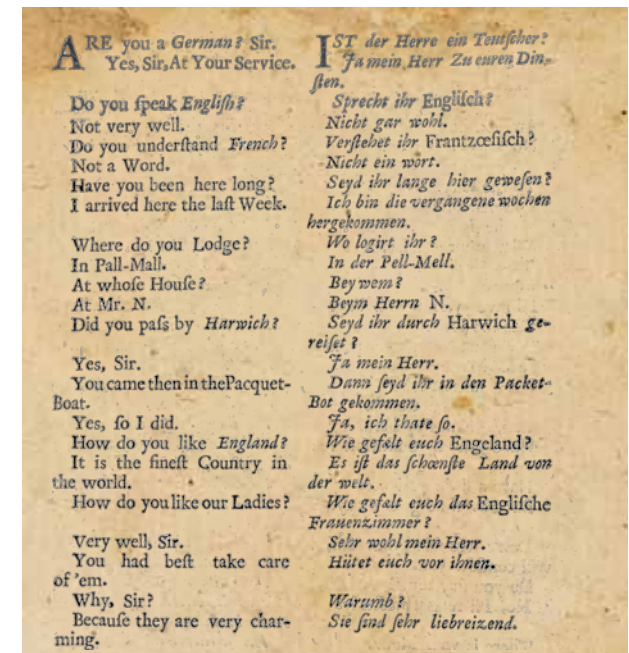 ARE you a German? Sir.
Yes, Sir, At Your Service.
Do you ſpeak Engliſh?
Not very well.
Do you underſtand French?
Not a Word.
Have you been here long?
I arrived here the laſt Week.
Where do you Lodge?
In Pall-Mall.
At whoſe Houſe?
At Mr. N.
Did you paſs by Harwich?
Yes, Sir.
You came then in thePacquet-
Boat.
Yes, ſo I did.
How do you like England?
It is the fineſt Country in
the world.
How do you like our Ladies?
Very well, Sir.
You had beſt take care
of 'em.
Why, Sir?
Becauſe they are very char-
ming.
IST der Herre ein Teutſcher?
Ja mein Herr Zu euren Din-
ſten.
Sprecht ihr Engliſch?
Nicht gar wohl.
Verſtehet ihr Frantzœſiſch?
Nicht ein wort.
Seyd ihr lange hier geweſen?
Ich bin die vergangene wochen
hergekommen.
Wo logirt ihr?
In der Pell-Mell.
Bey wem?
Beym Herrn N.
Seyd ihr durch Harwich ge-
reiſet?
Ja mein Herr.
Dann ſeyd ihr in den Packet-
Bot gekommen.
Ja, ich thate ſo.
Wie gefælt euch Engeland?
Es iſt das ſchœnſte Land von
der welt.
Wie gefælt euch das Engliſche
Frauenzimmer?
Sehr wohl mein Herr.
Hütet euch vor ihnen.
Warumb?
Sie ſind ſehr liebreizend.